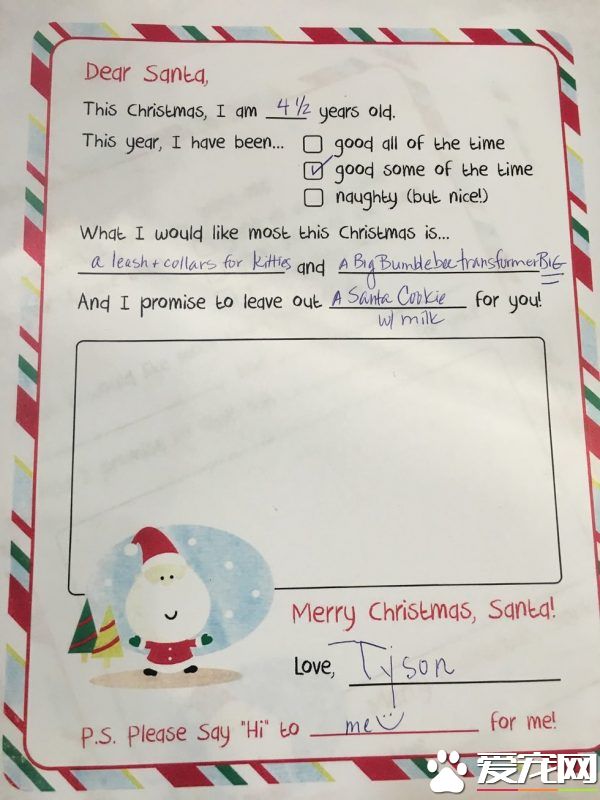 Dear Santa,
This Christmas, I am 4 1/2 years old.
This year, I have been... good all of the time
good some of the time
naughty (but nice!)
What I would like most this Christmas is...
a leash + collars for kitties and A Big Bumblebee transformer BIG
And I promise to leave out A Santa Cookie for you!
w/ milk
Merry Christmas, Santa!
Love, Tyson
P.S. Please Say "Hi" to me for me!
爱宠网